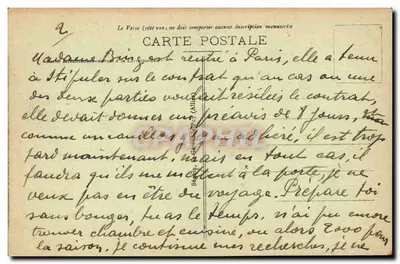 2
Le Verso (côté vue, ne doit comporter aucune inscription manuscrite
CARTE POSTALE
Madame est rentré à Paris, elle a tenu
à stipuler sur le contrat qu'au cas ou une
des deux parties voudrait résilier le contrat,
elle devait donner un préavis de 8 jours,
comme un est trop
tard maintenant, mais en tout cas, il
faudra qu'ils me mettent à la porte, je ne
veux pas en être du voyage. Prépare toi
sans bouger, tu as le temps, n'ai pu encore
trouver chambre et cuisine, ou alors 2000 pour
la saison. Je continue mes recherches, je ne